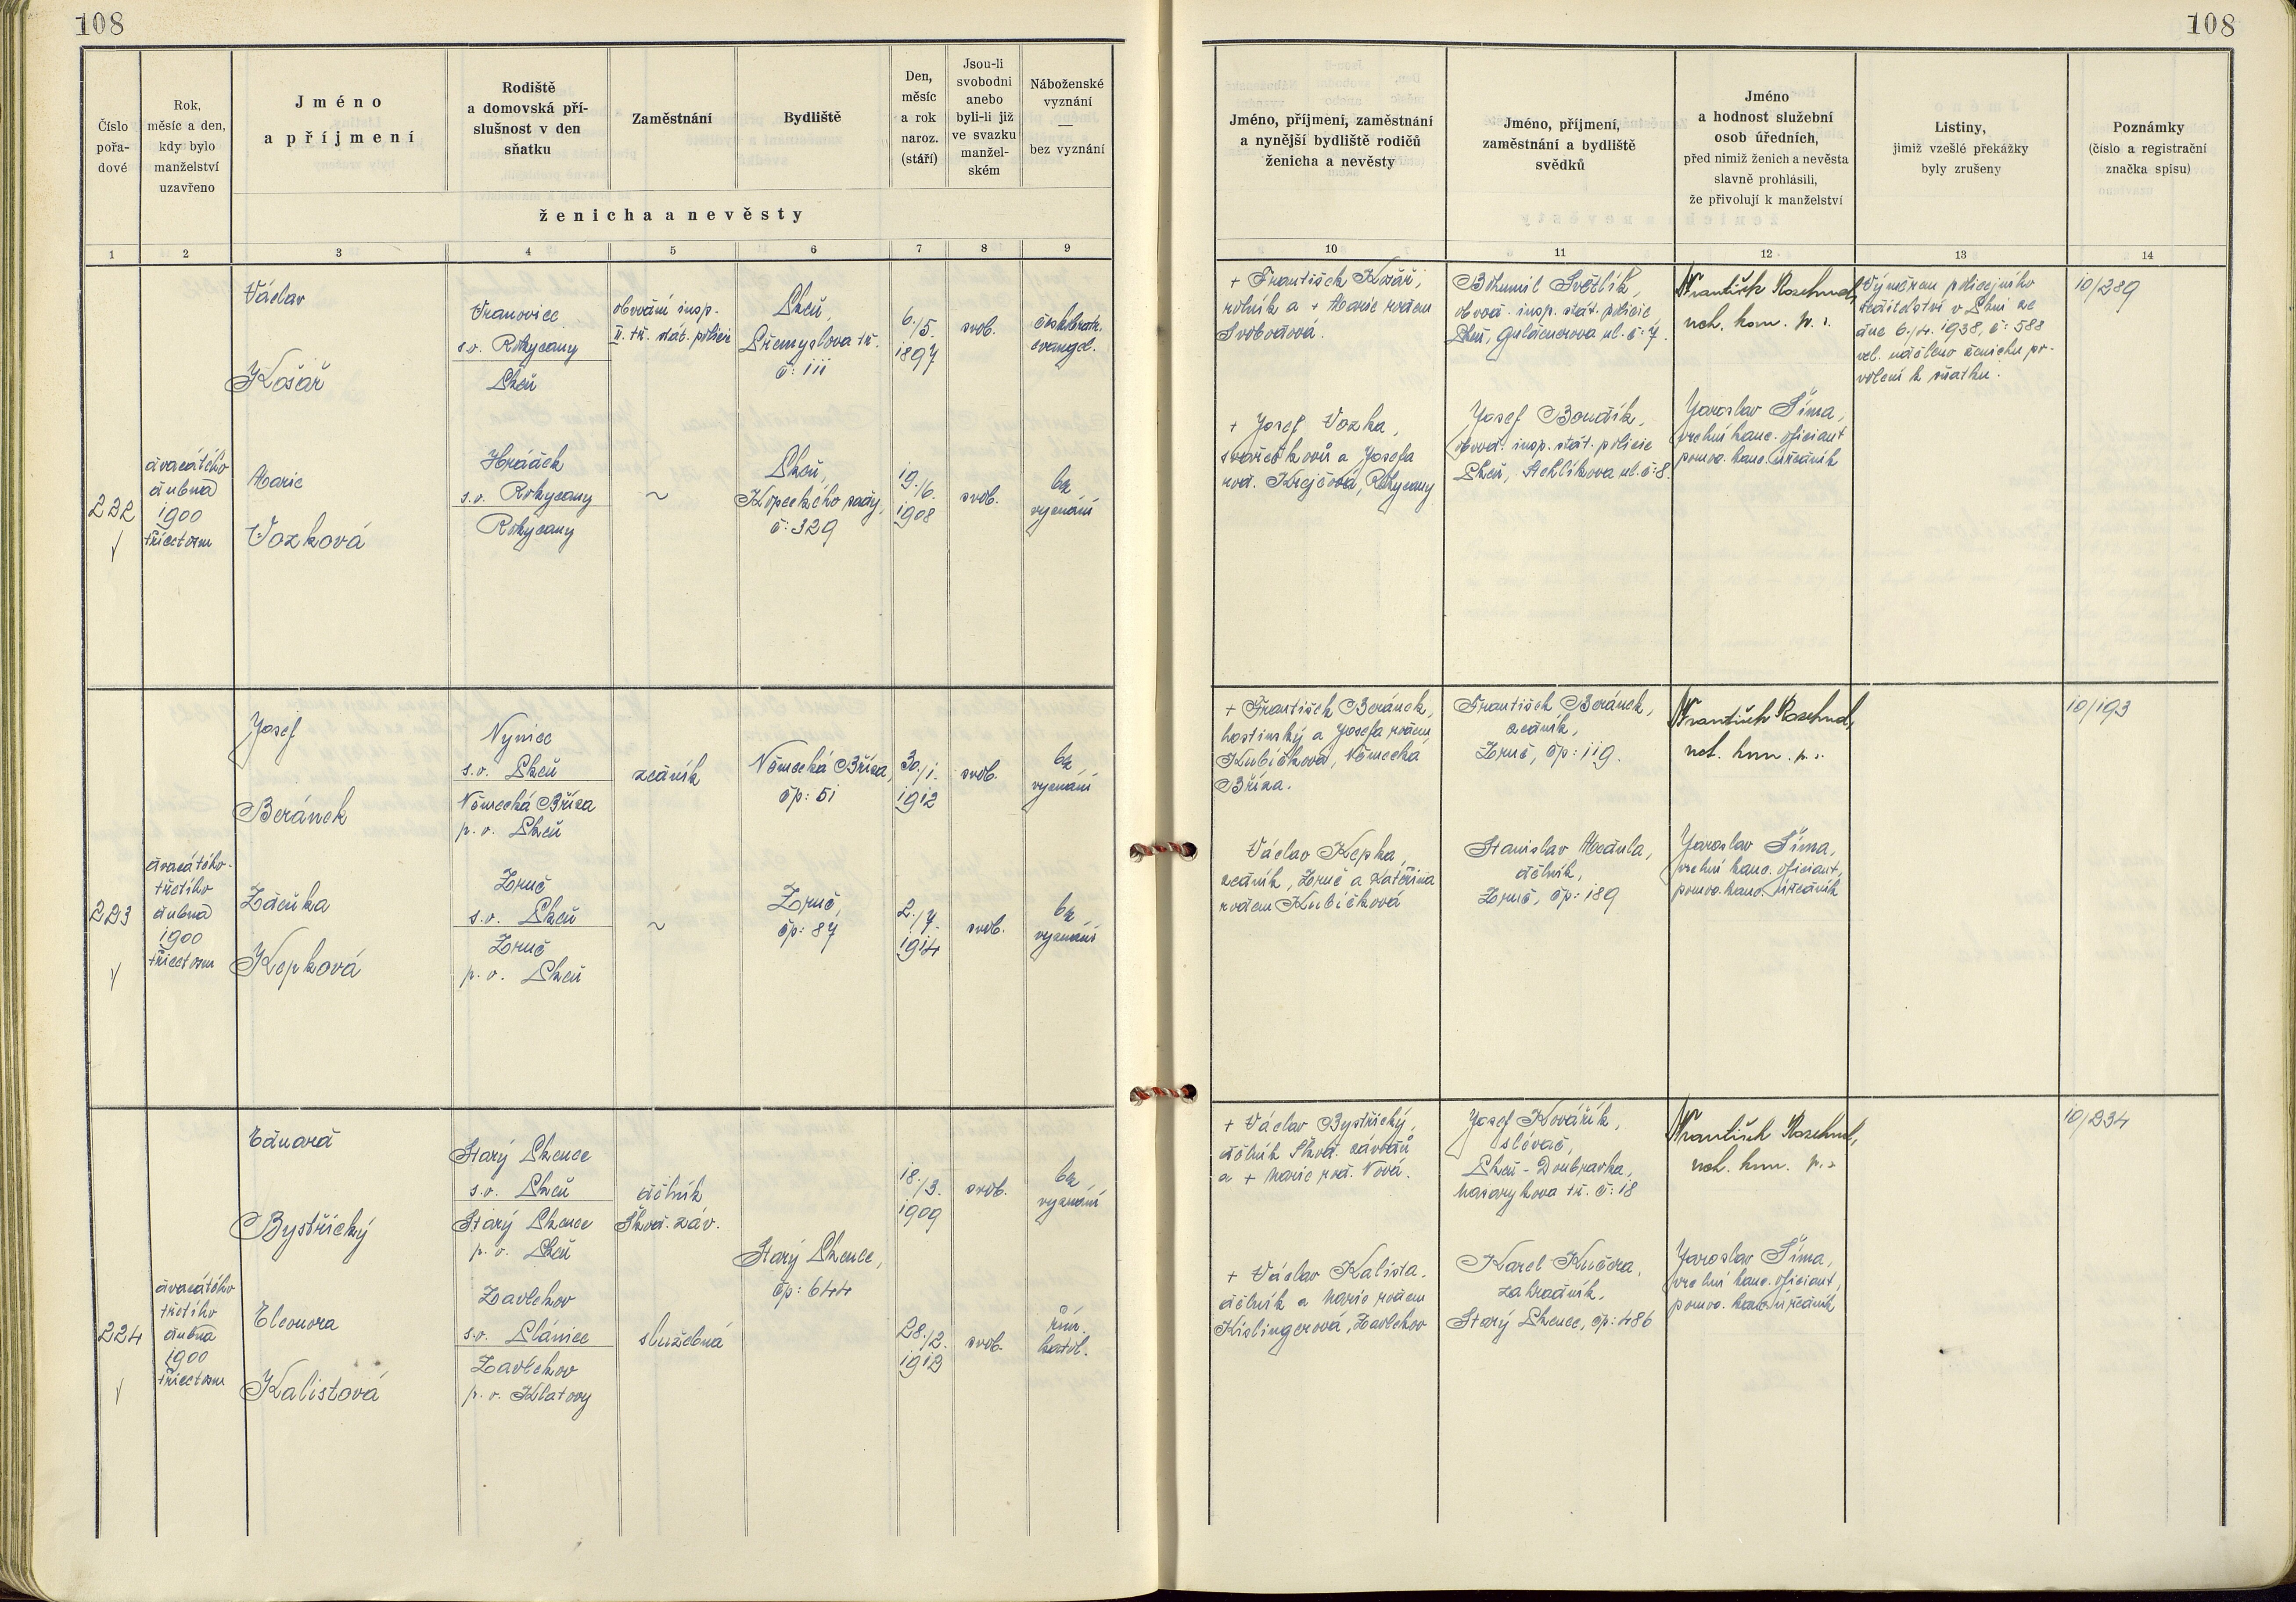 108
108
Číslo
pořa-
dové
Rok,
měsíc a den,
kdy bylo
manželství
uzavřeno
Jméno
a příjmení
Rodiště
a domovská pří-
slušnost v den
sňatku
Zaměstnání
Bydliště
Den,
měsíc
a rok
naroz.
(stáří)
Jsou-li
svobodni
anebo
byli-li již
ve svazku
manžel-
ském
Náboženské
vyznání
—
bez vyznání
ženicha a nevěsty
Jméno, příjmení, zaměstnání
a nynější bydliště rodičů
ženicha a nevěsty
Jméno, příjmení,
zaměstnání a bydliště
svědků
Jméno
a hodnost služební
osob úředních,
před nimiž ženich a nevěsta
slavně prohlásili,
že přivolují k manželství
Listiny,
jimiž vzešlé překážky
byly zrušeny
Poznámky
(číslo a registrační
značka spisu)
1 2 3 4 5 6 7 8 9 10 11 12 13 14
232
dvacátého
dubna
1900
třicetosm
Václav
Košař
Vranovice
s.o. Rokycany
Plzeň
obvodní insp.
II. tř. stát. policie
Plzeň,
Přemyslova tř.
č: 111
6./5.
1897
svob.
českobratr.
evangel.
Marie
Vozková
Hrádek
s.o. Rokycany
Rokycany
~
Plzeň,
Kopeckého sady,
č: 329
19./6.
1908
svob.
bez
vyznání
+ František Košař,
rolník a + Marie rozen
Svobodová.
+ Josef Vozka,
svářeč kovů a Josefa
roz. Krejčová, Rokycany
Bohumil Světlík,
obvod. insp. stát. policie,
Plzeň, Guldenerova ul. č: 7.
Josef Boudík,
obvod. insp. stát. policie
Plzeň, Nehlíkova ul. č: 8.
František Rozehnal,
rch. kom. p. s.
Jaroslav Šíma,
vrchní kanc. oficiant
pomoc. kanc. úředník
Výměrem policejního
ředitelství v Plzni ze
dne 6./4. 1938, č: 588
vel. uděleno ženichu po-
volení k sňatku.
10/289
293
dvacátého-
třetího
dubna
1900
třicetosm
Josef
Beránek
Nýnice
s.o. Plzeň
Německá Bříza
p. o. Plzeň
zedník
Německá Bříza,
čp: 51
30./1.
1912
svob.
bez
vyznání
Zdeňka
Kepková
Zruč
s.o. Plzeň
Zruč
p. o. Plzeň
~
Zruč,
čp: 87
2./7.
1914
svob.
bez
vyznání
+ František Beránek,
hostinský a Josefa rozen
Kubíčková, Německá
Bříza.
Václav Kepka,
zedník, Zruč a Kateřina
rozen Kubíčková
František Beránek,
zedník,
Zruč, čp: 119.
Stanislav Macdula,
dělník,
Zruč, čp: 189
František Rozehnal,
rch. kom. p. s.
Jaroslav Šíma,
vrchní kanc. oficiant,
pomoc. kanc. úředník
10/193
224
dvacátého
třetího
dubna
1900
třicetosm
Eduard
Bystřický
Starý Plzenec
s.o. Plzeň
Starý Plzenec
p. o. Plzeň
dělník
Škod. záv.
Starý Plzenec,
čp: 644
18./3.
1909
svob.
bez
vyznání
Eleonora
Kalistová
Zavlekov
s.o. Plánice
Zavlekov
p. o. Klatovy
služebná
28./2.
1912
svob.
řím.
katol.
+ Václav Bystřický,
dělník Škod. závodů
a + Marie roz. Nová.
+ Václav Kalista,
dělník a Marie rozen
Kislingerová, Zavlekov
Josef Kovářík,
slévač,
Plzeň-Doubravka,
Masarykova tř. č: 18
Karel Kučera,
zahradník,
Starý Plzenec, čp: 486
František Rozehnal,
rch. kom. p. s.
Jaroslav Šíma,
vrchní kanc. oficiant,
pomoc. kanc. úředník
10/234